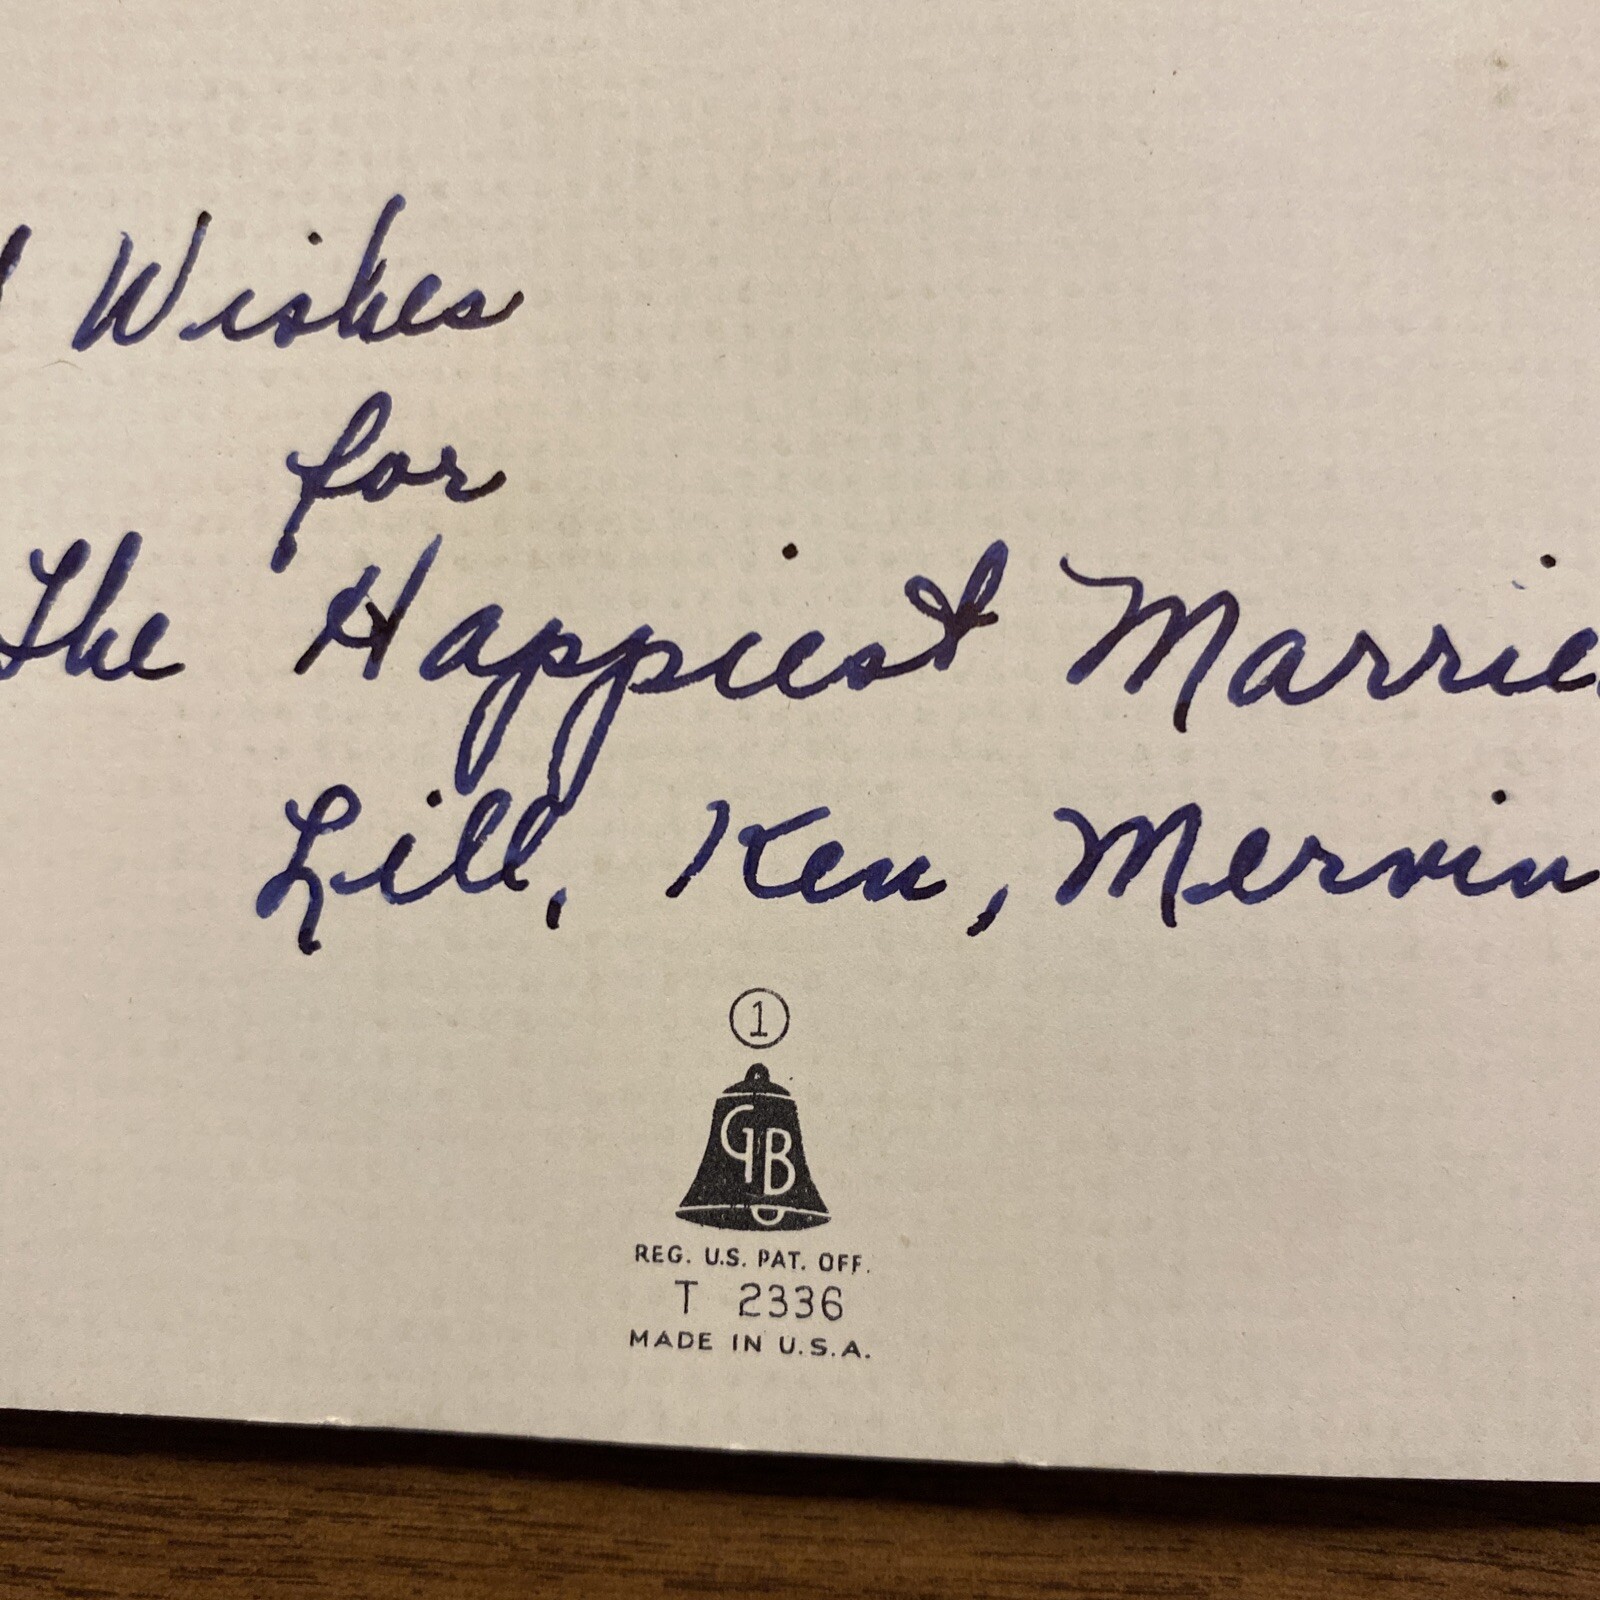 Wishes
for
The Happiest Marrie
Lill, Ken, Mervin
1
GB
REG. U.S. PAT. OFF.
T 2336
MADE IN U.S.A.